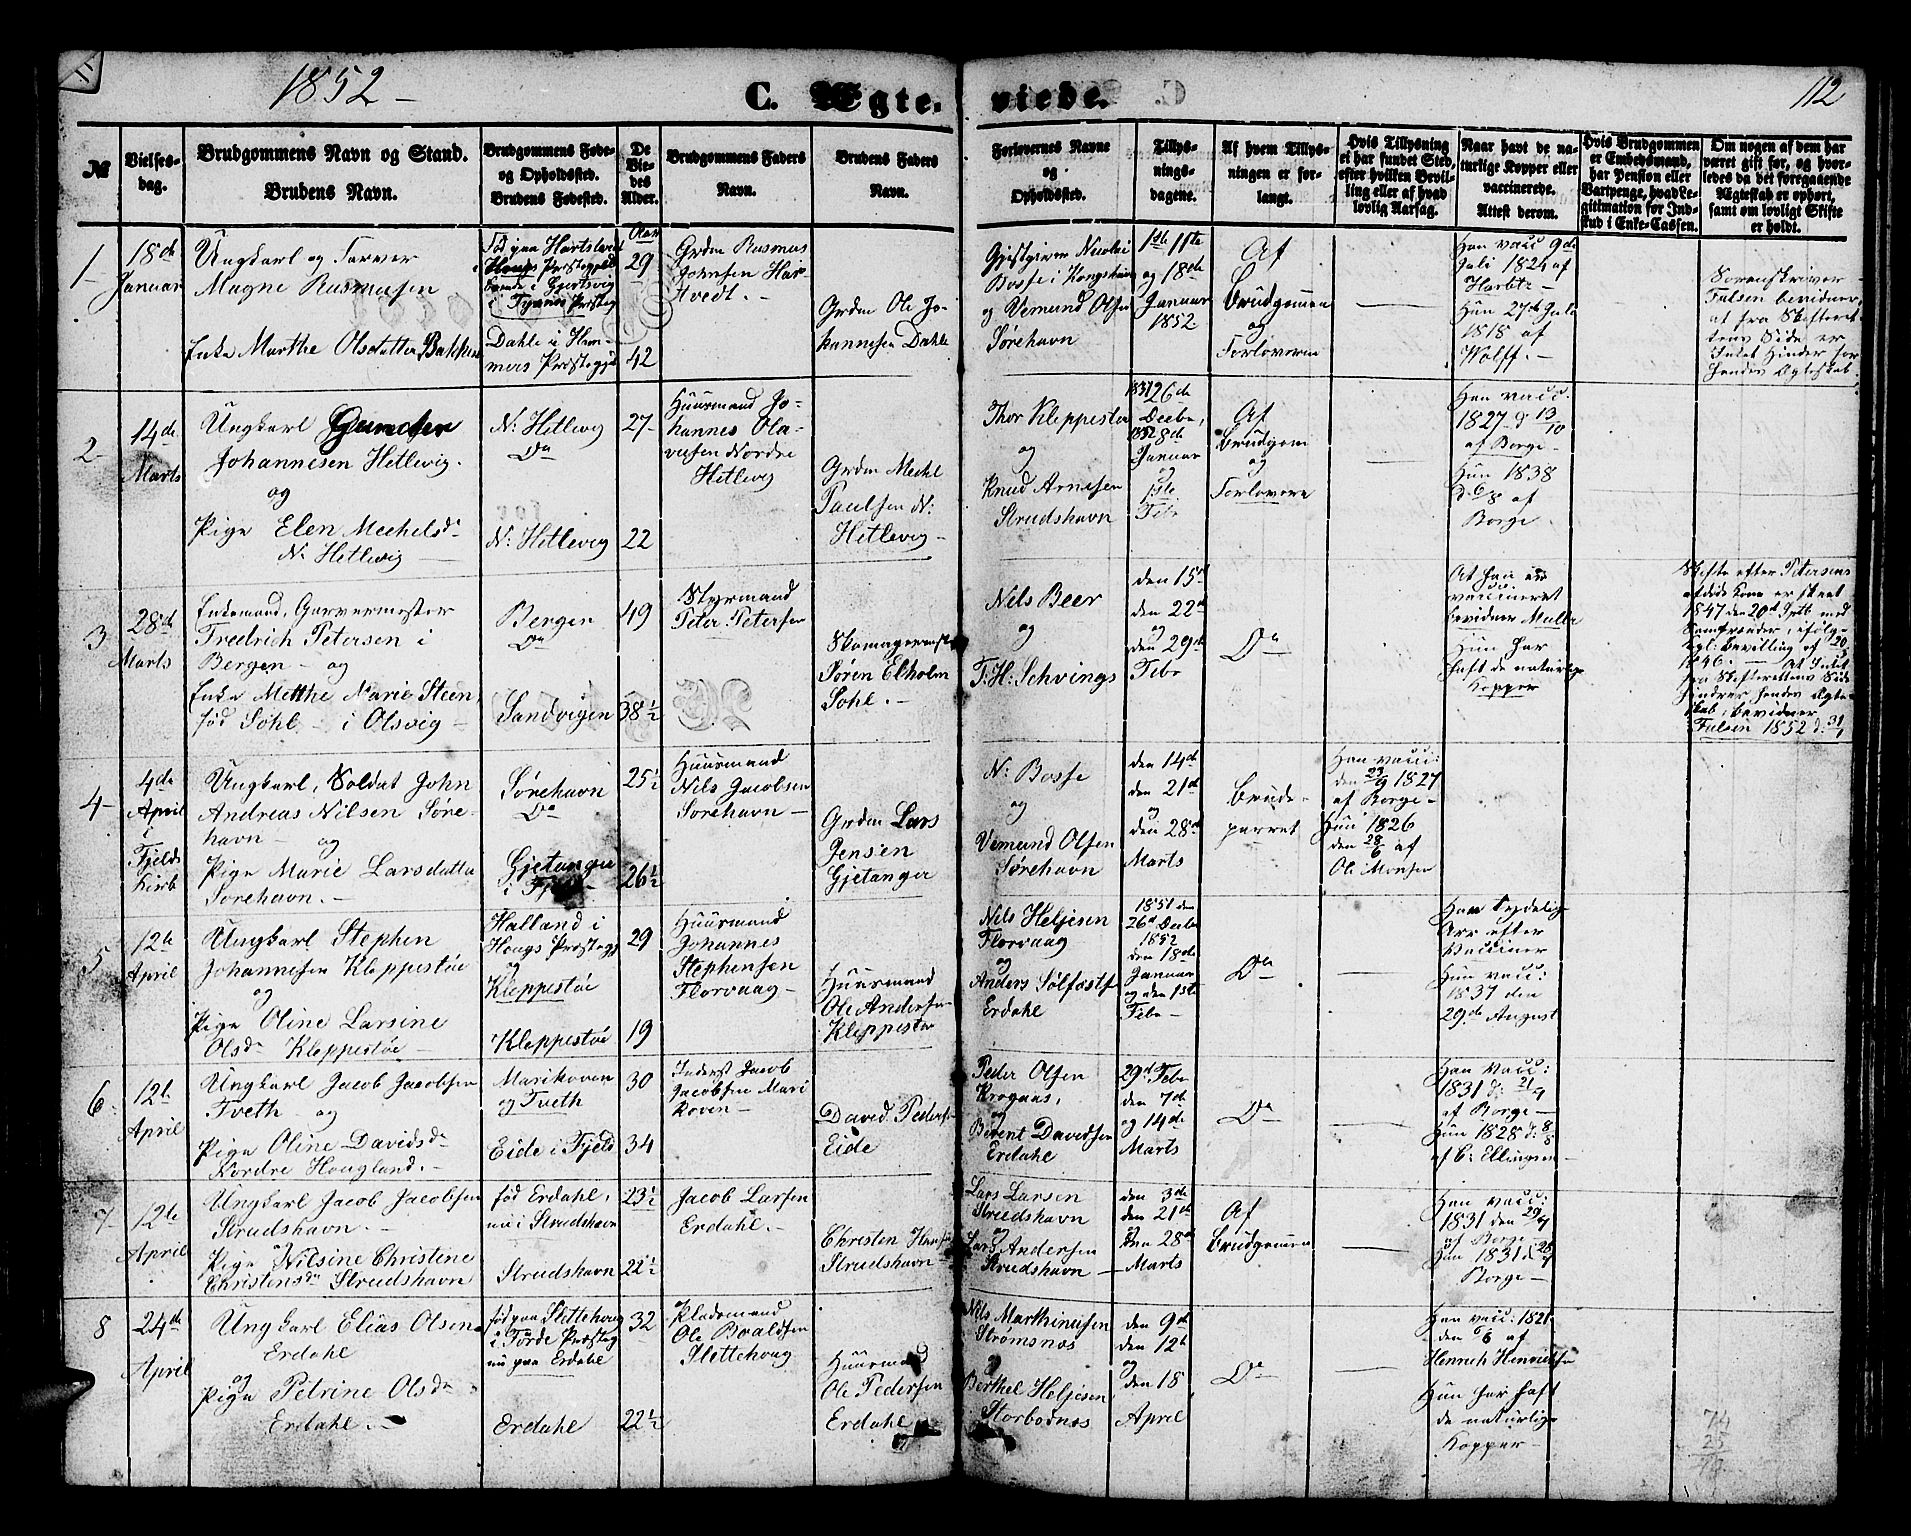 1852 -
C. Ægte-
viede.
112
№
Vielses-
dag.
Brudgommens Navn og Stand.
Brudens Navn.
Brudgommens Føde-
og Opholdssted.
Brudens Fødested.
De
Vie-
des
Alder.
Brudgommens Faders
Navn.
Brudens Faders
Navn.
Forlovernes Navne
og
Opholdssted.
Tillys-
nings-
dagene.
Af hvem Tillys-
ningen er for-
langt.
Hvis Tillysning
ei har fundet Sted,
efter hvilken Bevil-
ling eller af hvad
lovlig Aarsag.
Naar havt de na-
turlige Kopper eller
vaccinerede.
Attest derom.
Hvis Brudgommen
er Embedsmand,
har Pension eller
Vartpenge, hvad Le-
gitimation for Ind-
stud i Enke-Cassen.
Om nogen af dem har
været gift før, og hvor-
ledes da det foregaaende
Ægteskab er ophørt,
samt om lovligt Skifte
er holdt.
1-
18de
Januar
Ungkarl og Farver
Magne Rasmusen
Enke Marthe Olsdatter Bakken
Dahle i Ham-
mers Præstegjd
29
42
Grdm Rasmus
Grdm Ole Jo-
hannesen Dahle
Gjestgiver Nicolai
Bosse i Kongshavn
og Vemund Olsen
Sørehavn
11te
og 18de
Januar
1852
Af
Brudgommen
og
Forloverne
Han vacc 9de
Juli 1824 af
Hun 27de Juli
1818 af
Wolff. -
Sorenskriver
Falsen bevidner,
at fra Skifteret-
tens Side er
Intet Hinder for
hendes Ægteskab.
2-
14de
Marts
Ungkarl
Johannesen Hetlevig.
og
Pige Elen Mechelsdr
N: Hetlevig -
N: Hetlevig
Do
N: Hetlevig
27
22
Huusmand Jo-
hannes Ola-
vesen Nordre
Hetlevig
Grdm Mechl
Paulsen N:
Hetlevig -
Thor Kleppestø
og
Knud Arnesen
Strudshavn
26de
Decbr,
1852 8de
Januar
og
1ste
Febr
Af
Brudgom
og
Forlovere
Han vacc.
1827 d 13/10
af Borge -
Hun 1838
d 6/8 af
Borge.
3
28de
Marts
Enkemand, Garvermester
Fredrich Petersen i
Bergen - og
Enke Metthe Marie Steen,
fød Sohl - i Olsvig -
Bergen
Do
Sandvigen
49
38½
Styrmand
Peter Petersen
Skomagermester
Søren Elholm
Sohl. -
Nils Beer
og
T. H: Schvings
den 15de
den 22de
og
den 29de
Febr
Do
At han er
vaccineret
bevidner Müller
Hun har
haft de naturlige
Kopper
Skifte efter Petersens
afdøde Kone er skeet
1847 den 20de Sptb med
Samfrænder, ifølg
kgl: Bevilling af
1846. - At Intet
fra Skifterettens Side
hindrer hendes Ægte-
skab, bevidner
Falsen 1852 d: 31/1
4-
4de
April
i
Fjelds
Kirk
Ungkarl, Soldat John
Andreas Nilsen Søre-
havn - og
Pige Marie Larsdatter
Sørehavn. -
Sørehavn
Do
Gjetanger
i Fjeld
25½
26½
Huusmand
Nils Jacobsen
Sørehavn -
Grdm Lars
Jensen
Gjetanger
N: Bosse
og
Vemund Olsen
Sørehavn
den 14de
den 21de
og
den 28de
Marts
Brude-
parret
Han vacc:
den 23/9 1827
af Borge -
Hun 1826
den 28/6 af
Ole Monsen
5
12te
April
Ungkarl Stephen
Johannesen Kleppestøe
og
Pige Oline Larsine
Olsdr Kleppestøe -
Halland i
Hougs Præstegjd
og
Kleppestøe
Kleppestøe
29
19
Huusmand
Johannes
Stephensen
Florvaag -
Huusmand
Ole Andersen
Kleppestø
Nils Heljesen
Florvaag
og
Anders Solfæstsen
Erdahl
1851 den
26de Decbr
1852
den 18de
Januar
og den 1ste
Febr -
Do
Han tydelige
Arr efter
Vacciner
Hun vacc:
1837 den
29de August
6.
12te
April
Ungkarl Jacob Jacobsen
Tveth - og
Pige Oline Davidsdr
Nordre Hougland. -
Marikoven
og Tveth
Eide i Fjeld
30
34
Inderst Jacob
Jacobsen Mari
koven -
David Peders-
Eide
Peder Olsen
Krogaas,
og
Berent Davidsen
Erdahl
29de Febr
den 7de
og 14de
Marts
Do
Han vacc:
1831 d: 21/9
af Borge -
Hun 1828 d: 8/8
af C: Ellingsen -
7-
12te
April
Ungkarl Jacob Jacobsen
Strudshavn. -
Pige Nilsine Christine
Christensdr Strudshavn
fød Erdahl,
nu i Strudshavn
Strudshavn
23½
22½
Jacob Larsen
Erdahl. -
Christen Hans-
Strudshavn -
Lars Larsen
Strudshavn
og
Lars Andersen
Strudshavn -
den 3de
den 21de
den 28de
Marts
Af
Brudgommen
Han vacc:
1831 den 29/9
af Borge -
Hun 1831 d 28/9
Borge -
8
24de
April
Ungkarl Elias Olsen
Erdahl
og
Pige Petrine Olsdr
Erdahl. -
fød paa Slettehoug
i Førde Præstegj
nu paa Erdahl
Erdahl
32
22½
Pladsmand
Ole Boraldsen
Slettehoug
Huusmand
Ole Pedersen
Erdahl
Nils Marthinusen
Strømsnæs
og
Berthel Heljesen
Storbodnæs
den 9de
den 12te
og
den 18
April
Do
Han vacc: 1821
af
Henrich Henricksen
Hun har haft
de naturlige
Kopper -
74
25